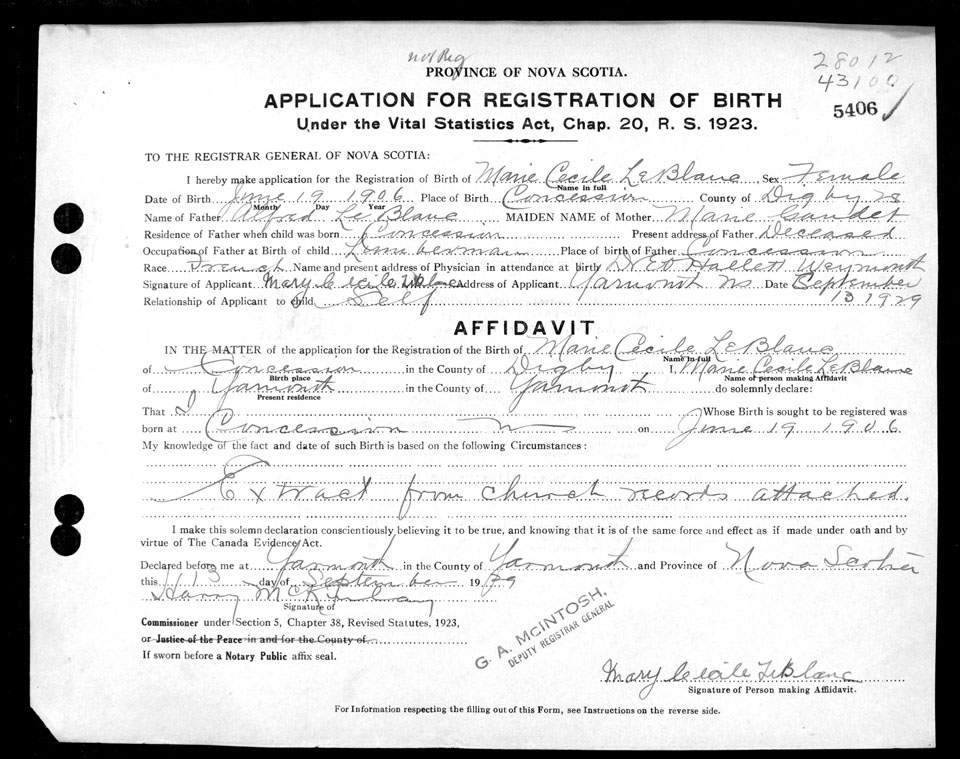 not Reg
28012
43100
PROVINCE OF NOVA SCOTIA.
5406
APPLICATION FOR REGISTRATION OF BIRTH
Under the Vital Statistics Act, Chap. 20, R. S. 1923.
TO THE REGISTRAR GENERAL OF NOVA SCOTIA:
I hereby make application for the Registration of Birth of Marie Cecile LeBlanc Sex Female
Name in full
Date of Birth June 19 1906 Place of Birth Concession County of Digby NS
Month Day Year
Name of Father Alfred LeBlanc MAIDEN NAME of Mother Marie Gaudet
Residence of Father when child was born Concession Present address of Father Deceased
Occupation of Father at Birth of child Lumberman Place of birth of Father Concession
Race French Name and present address of Physician in attendance at birth Hallett Weymouth
Signature of Applicant Mary Cecile LeBlanc Address of Applicant Yarmouth NS Date September
13 1929
Relationship of Applicant to child Self
AFFIDAVIT
IN THE MATTER of the application for the Registration of the Birth of Marie Cecile LeBlanc
Name in full
of Concession in the County of Digby I, Marie Cecile LeBlanc
Birth place Name of person making Affidavit
of Yarmouth in the County of Yarmouth do solemnly declare:
Present residence
That I Whose Birth is sought to be registered was
born at Concession NS on June 19 1906
My knowledge of the fact and date of such Birth is based on the following Circumstances:
Extract from church records attached.
I make this solemn declaration conscientiously believing it to be true, and knowing that it is of the same force and effect as if made under oath and by
virtue of The Canada Evidence Act.
Declared before me at Yarmouth in the County of Yarmouth and Province of Nova Scotia
this 13 day of September 1929
Harry
Signature of
Commissioner under Section 5, Chapter 38, Revised Statutes, 1923,
or Justice of the Peace in and for the County of
If sworn before a Notary Public affix seal.
G. A. McINTOSH,
DEPUTY REGISTRAR GENERAL
Mary Cecile LeBlanc
Signature of Person making Affidavit.
For Information respecting the filling out of this Form, see Instructions on the reverse side.